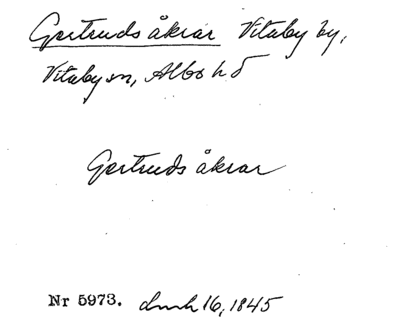 Gertruds åkrar Vitaby by,
Vitaby sn, Albo hd
Gertruds åkrar
Nr 5973. 16, 1845